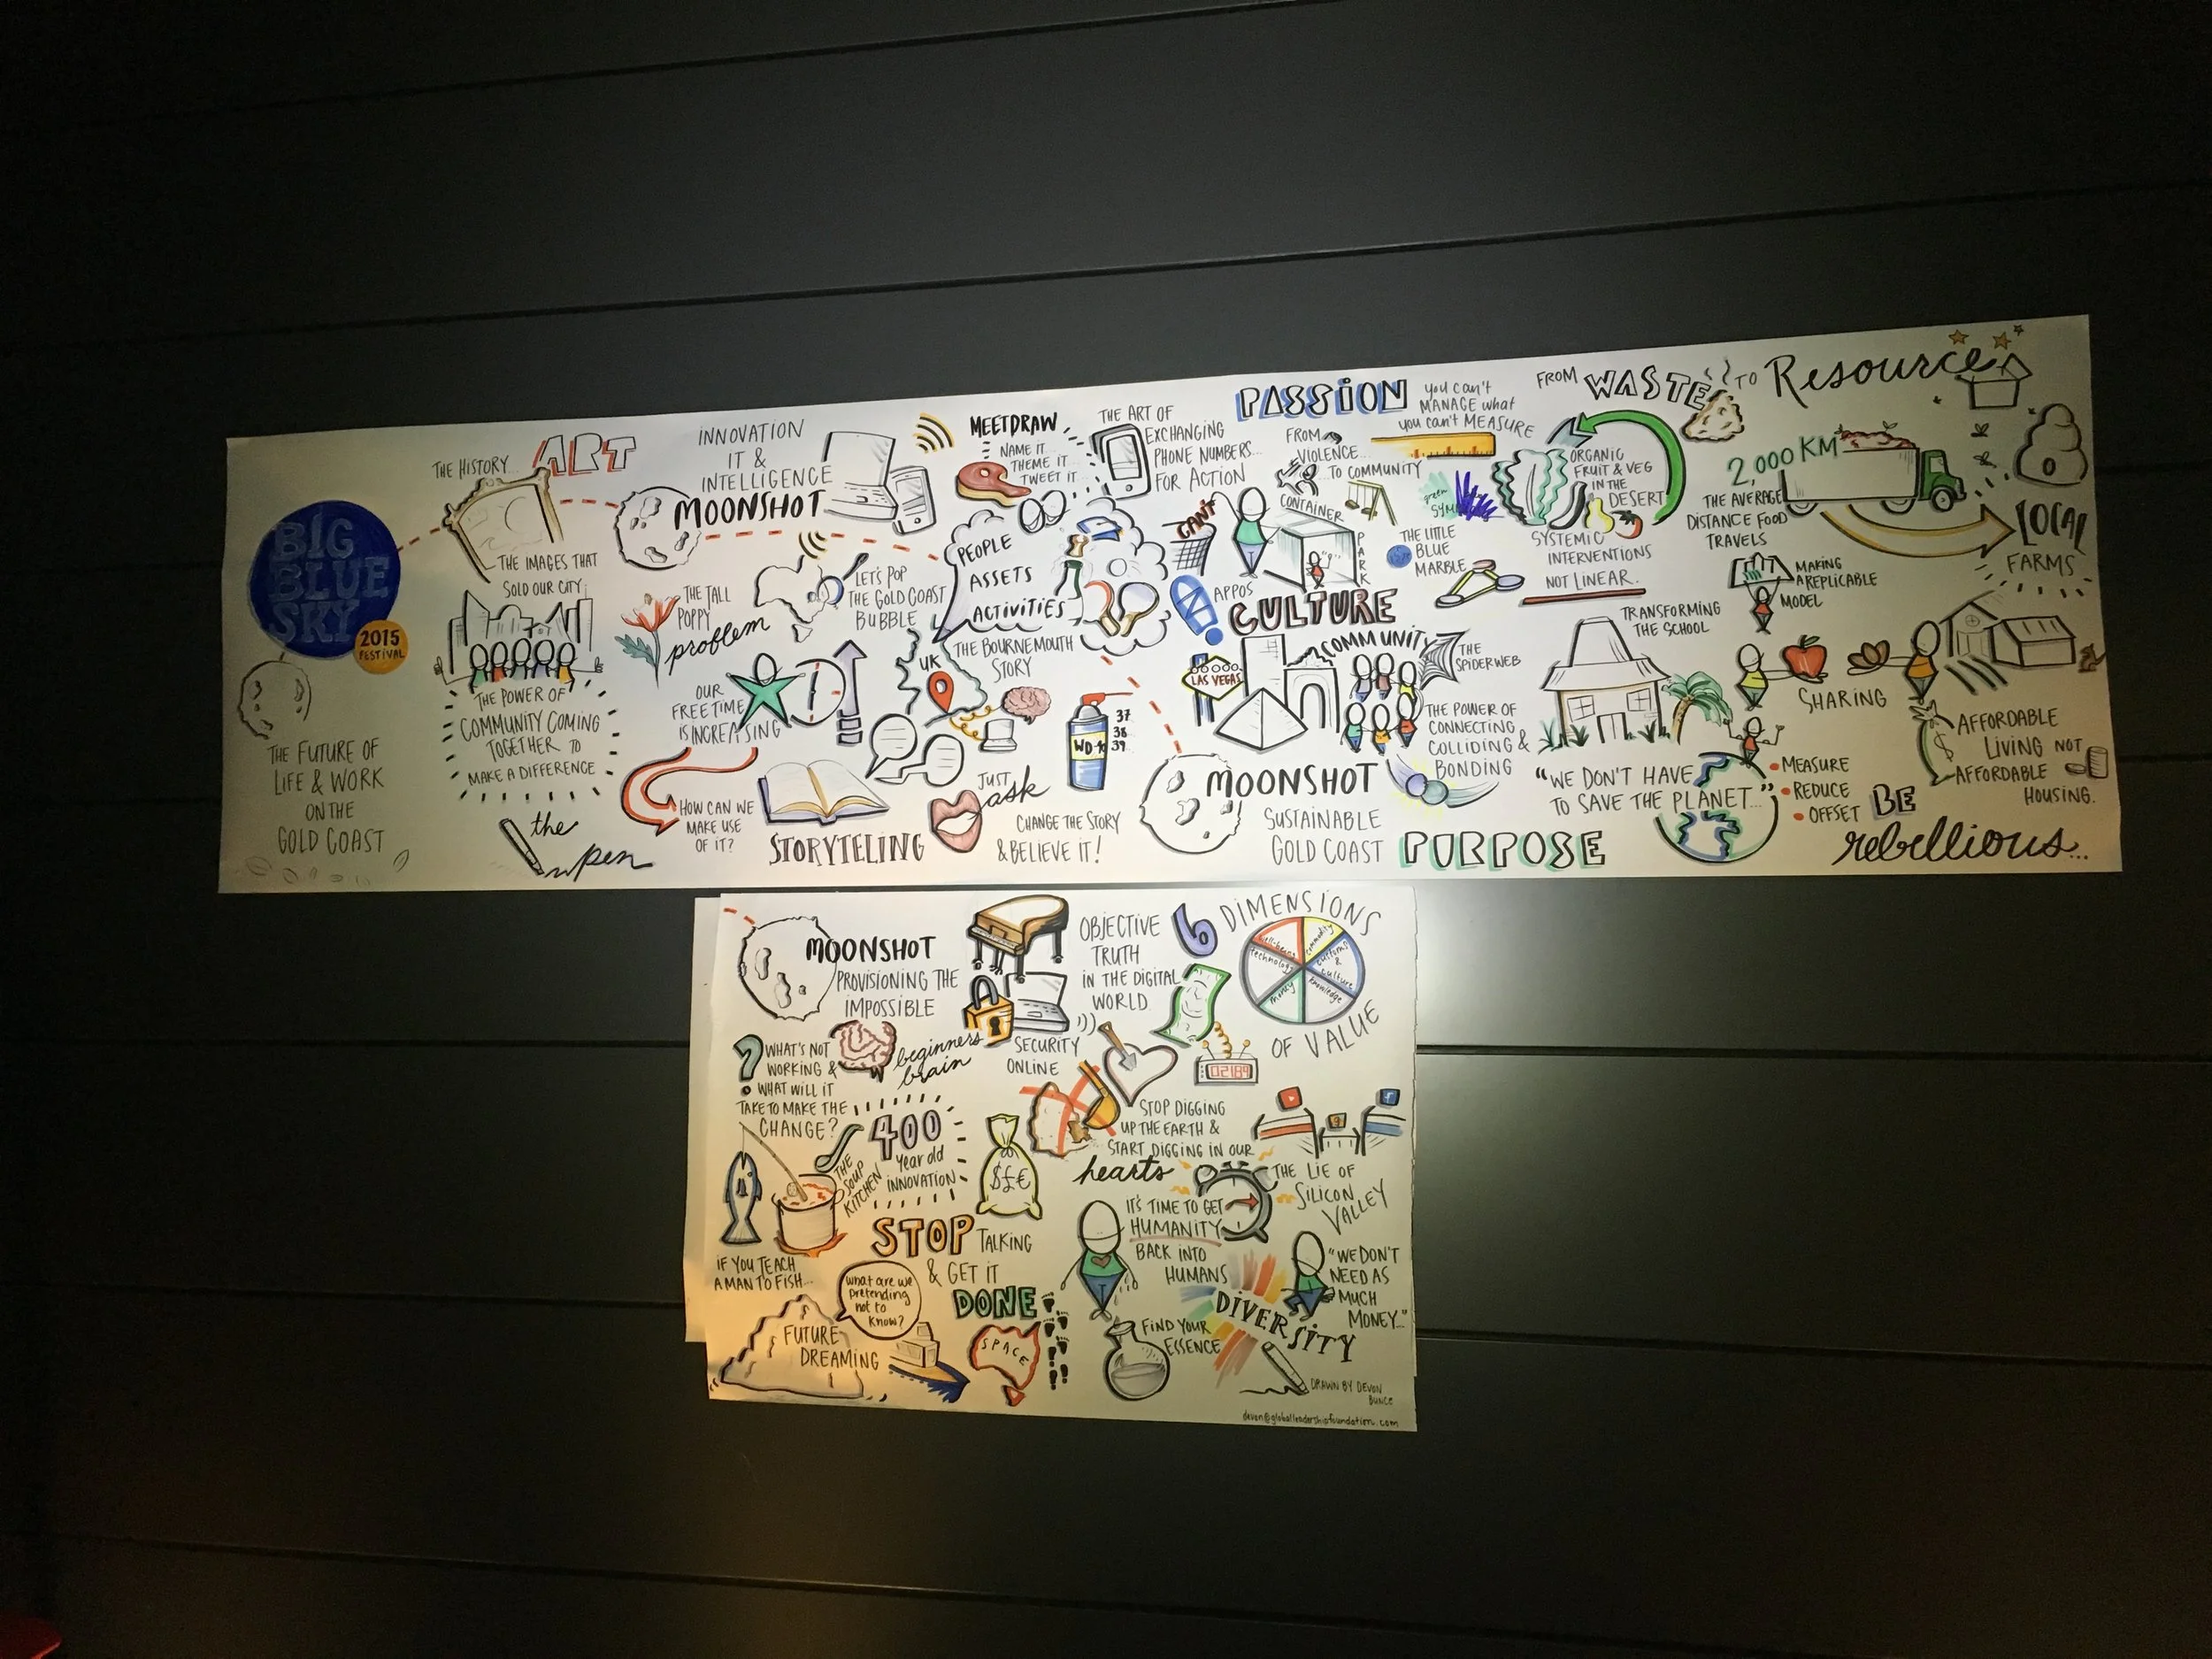 BIG
BLUE
SKY
2015
FESTIVAL
THE FUTURE OF
LIFE & WORK
ON THE
GOLD COAST
THE HISTORY...
ART
THE IMAGES THAT
SOLD OUR CITY
THE POWER OF
COMMUNITY COMING
TOGETHER TO
MAKE A DIFFERENCE
the
pen
INNOVATION
IT &
INTELLIGENCE
MOONSHOT
THE TALL
POPPY
problem
LET'S POP
THE GOLD COAST
BUBBLE
OUR
FREE TIME
IS INCREASING
HOW CAN WE
MAKE USE
OF IT?
STORYTELING
MEETDRAW
NAME IT
THEME IT...
TWEET IT...
PEOPLE
ASSETS
ACTIVITIES
UK
THE BOURNEMOUTH
STORY
JUST
ask
CHANGE THE STORY
& BELIEVE IT!
WD-40
37
38
39
THE ART OF
EXCHANGING
PHONE NUMBERS...
FOR ACTION
PASSION
you can't
MANAGE what
you can't MEASURE
FROM
VIOLENCE...
...TO COMMUNITY
CAN'T
CONTAINER
PARK
APPOS
CULTURE
THE LITTLE
BLUE
MARBLE
LAS VEGAS
COMMUNITY
THE
SPIDERWEB
THE POWER OF
CONNECTING
COLLIDING &
BONDING
MOONSHOT
SUSTAINABLE
GOLD COAST
PURPOSE
FROM WASTE TO Resource
ORGANIC
FRUIT & VEG
IN THE
DESERT
SYSTEMIC
INTERVENTIONS
NOT LINEAR.
2,000 KM
THE AVERAGE
DISTANCE FOOD
TRAVELS
LOCAL
FARMS
MAKING
A REPLICABLE
MODEL
TRANSFORMING
THE SCHOOL
SHARING
"WE DON'T HAVE
TO SAVE THE PLANET..."
MEASURE
REDUCE
OFFSET
AFFORDABLE
LIVING NOT
AFFORDABLE
HOUSING.
BE
rebellious...
MOONSHOT
PROVISIONING THE
IMPOSSIBLE
OBJECTIVE
TRUTH
IN THE DIGITAL
WORLD
SECURITY
ONLINE
6 DIMENSIONS
OF VALUE
technology
money
knowledge
culture
WHAT'S NOT
WORKING &
WHAT WILL IT
TAKE TO MAKE THE
CHANGE?
beginners
brain
400
Year old
INNOVATION
THE
SOUP
KITCHEN
$£€
02189
STOP DIGGING
UP THE EARTH &
START DIGGING IN OUR
hearts
THE LIE OF
SILICON
VALLEY
IF YOU TEACH
A MAN TO FISH...
STOP TALKING
& GET IT
DONE
IT'S TIME TO GET
HUMANITY
BACK INTO
HUMANS
"WE DON'T
NEED AS
MUCH
MONEY..."
DIVERSITY
What are we
pretending
not to
know?
FUTURE
DREAMING
SPACE
FIND YOUR
ESSENCE
DRAWN BY DEVON
BUNCE
devon@globalleadershipfoundation.com